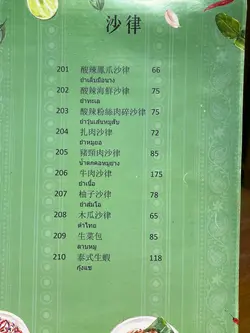 沙律
201 酸辣鳳爪沙律 66
ยำเล็บมือนาง
202 酸辣海鮮沙律 75
ยำทะเล
203 酸辣粉絲肉碎沙律 75
ยำวุ้นเส้นหมูสับ
204 扎肉沙律 72
ยำหมูยอ
205 豬頸肉沙律 85
น้ำตกคอหมูย่าง
206 牛肉沙律 175
ยำเนื้อ
207 柚子沙律 78
ยำส้มโอ
208 木瓜沙律 65
ตำไทย
209 生菜包 85
ลาบหมู
210 泰式生蝦 118
กุ้งแช่